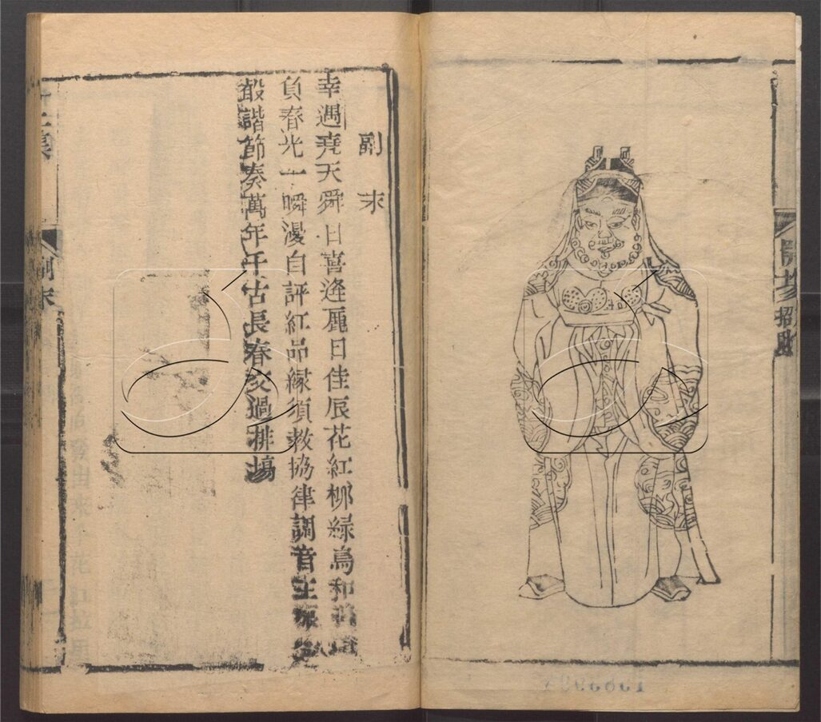 開場 招財
副末
幸遇堯天舜日喜逢麗日佳辰花紅柳綠鳥和
負春光一瞬漫自評紅品綠須教協律調音
般諧節奏萬年千古長春過排場
副末